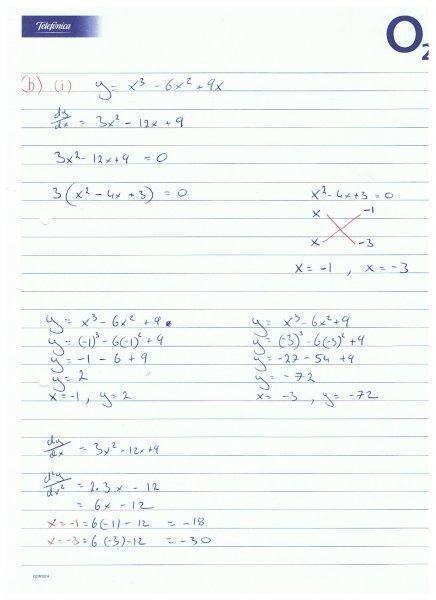 Telefónica
O2
(b) (i) y = x³ - 6x² + 9x
dy/dx = 3x² - 12x + 9
3x² - 12x + 9 = 0
3(x² - 4x + 3) = 0
x² - 4x + 3 = 0
x -1
x -3
x = -1 , x = -3
y = x³ - 6x² + 9
y = (-1)³ - 6(-1)² + 9
y = -1 - 6 + 9
y = 2
x = -1 , y = 2
y = x³ - 6x² + 9
y = (-3)³ - 6(-3)² + 9
y = -27 - 54 + 9
y = -72
x = -3 , y = -72
dy/dx = 3x² - 12x + 9
d²y/dx² = 2.3x - 12
= 6x - 12
x = -1 = 6(-1) - 12 = -18
x = -3 = 6(-3) - 12 = -30